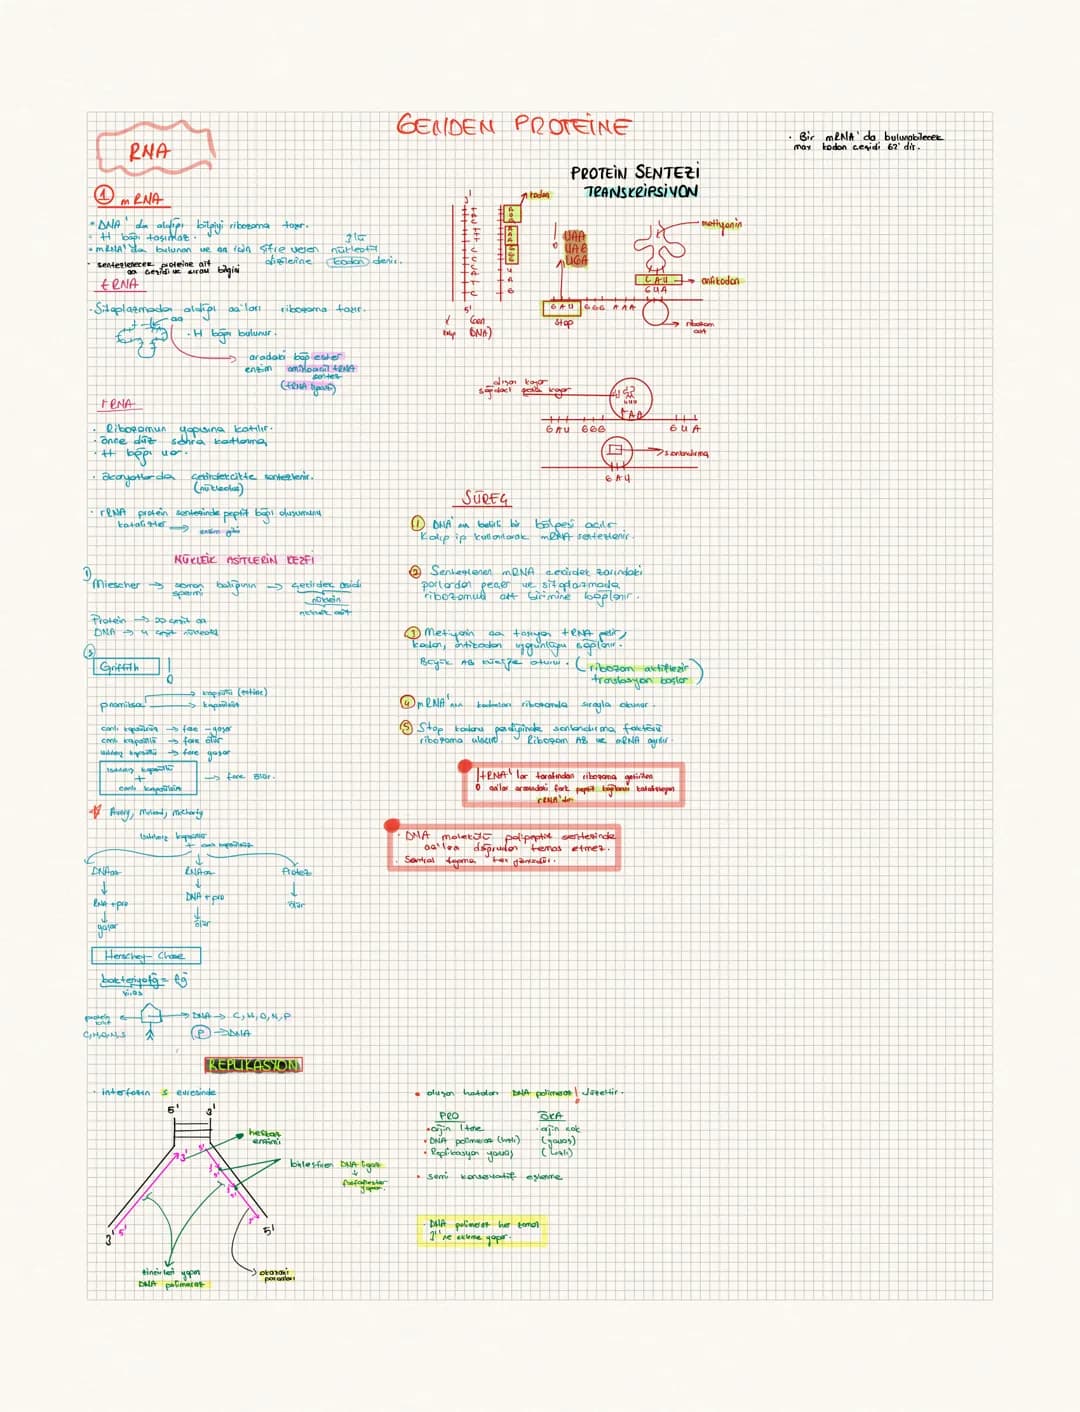 GENDEN PROTEİNE
RNA
① mRNA
• DNA'dan aldığı bilgiyi ribozoma taşır.
• H bağı taşımaz.
• mRNA'da bulunan ve aa için şifre veren 3'lü nükleotit
dizilerine kodon denir.
sentezlenecek proteine ait
aa çeşidi ve sırası bilgisi
tRNA
• Sitoplazmadan aldığı aa'ları ribozoma taşır.
aa
• H bağı bulunur.
aradaki bağ ester
enzim aminoaçil tRNA
sentez
(tRNA ligaz)
rRNA
• Ribozomun yapısına katılır.
• önce düz sonra katlanma
• H bağı var.
• ökaryotlarda çekirdekcikte sentezlenir.
(nükleolus)
• rRNA protein sentezinde peptit bağı oluşumunu
katalizler → enzim gibi
NÜKLEİK ASİTLERİN KEŞFİ
Miescher → somon balığının → çekirdek asidi
spermi
nüklein
nükleik asit
Protein → 20 çeşit aa
DNA → 4 çeşit nükleotit
Griffith !
pnömikok → kapsüllü (öldüren)
→ kapsülsüz
canlı kapsülsüz → fare → yaşar
canlı kapsüllü → fare ölür
ısıldırılmış kapsüllü → fare yaşar
kapsüllü
+
canlı kapsülsüz
→ fare ölür.
Avery, Mcleod, McCharty
kapsüllü
+ canlı kapsülsüz
DNAaz RNAaz Proteaz
↓ ↓ ↓
RNA + pro DNA + pro ölür
↓ ↓
yaşar ölür
Herschey - Chase
bakteriyofaj = faj
virüs
protein
kılıf
→ DNA → C, H, O, N, P
C,H,O,N,S
P → DNA
REPLİKASYON
• interfazın S evresinde
5' 3'
helikaz
enzimi
3' 5'
birleştiren DNA ligaz
↓
fosfodiester
yapar.
3' 5' 5'
zincirleri yapan
DNA polimeraz
okazaki
parçaları
PROTEİN SENTEZİ
TRANSKRİPSİYON
3'
kodon
5'
Gen
(DNA)
! UAA
UAG
UGA
GAU GGG AAA
Stop
methyonin
CAU
GUA
antikodon
ribozom
alt
GAU GGG GUA
sonlandırma
GAU
SÜREÇ
① DNA'nın belirli bir bölgesi açılır
Kalıp ip kullanılarak mRNA sentezlenir.
② Sentezlenen mRNA çekirdek zarındaki
porlardan geçer ve sitoplazmada
ribozomun alt birimine bağlanır.
③ Metiyonin aa taşıyan tRNA gelir,
kodon, antikodon uygunluğu sağlanır.
Büyük AB oturur. (ribozom aktifleşir
translasyon başlar)
④ mRNA'nın kodonları ribozomda sırayla okunur.
⑤ Stop kodonu geldiğinde sonlandırma faktörü
ribozoma ulaşır. Ribozom AB ve mRNA ayrılır.
! tRNA'lar tarafından ribozoma getirilen
aa'lar arasındaki peptit bağlarını katalizleyen
rRNA'dır.
• DNA molekülü polipeptit sentezinde
aa'lara doğrudan temas etmez.
• Santral dogma tek yönlüdür.
• oluşan hataları DNA polimeraz ! düzeltir.
PRO ÖKA
• orjin 1 tane • orjin çok
• DNA polimeraz (hızlı) (yavaş)
• Replikasyon yavaş (hızlı)
• semi konservatif eşlenme
• DNA polimeraz her zaman
3''ne ekleme yapar.
• Bir mRNA'da bulunabilecek
max kodon çeşidi 62'dir.